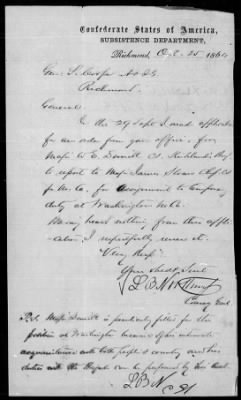 Confederate States of America,
SUBSISTENCE DEPARTMENT,
Richmond, Oct 25 1864
Gen. S. Cooper A & IG
Richmond.
General
On the 29 Sept I made application
for an order from your office, for
Majr W. E. Demill CS. Richlands
to report to Majr James Sloan Chf CS
for N.Ca. for assignment to temporary
duty at Washington N.C.
Having heard nothing from this appli-
cation, I respectfully renew it.
Very Resp
Your Obedt Servt
L B Northrop
Comsy Genl
P.S. Majr Demill is particularly fitted for this
position at Washington because of his intimate
acquaintance with both people & country and his
duties with the people can be performed by him
L.B.N